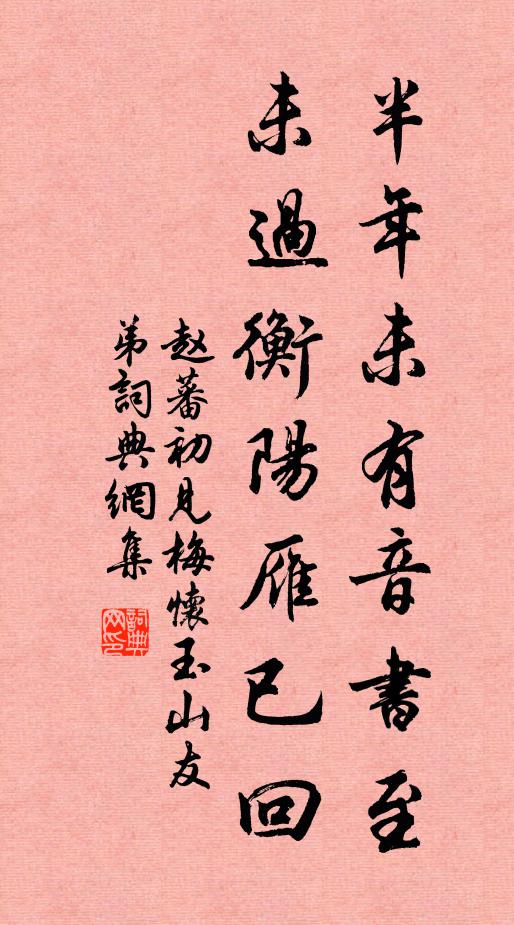 半年未有音書至
未過衡陽雁已回
赵蕃初見梅懷玉山友
弟詞典網集
詞典网印